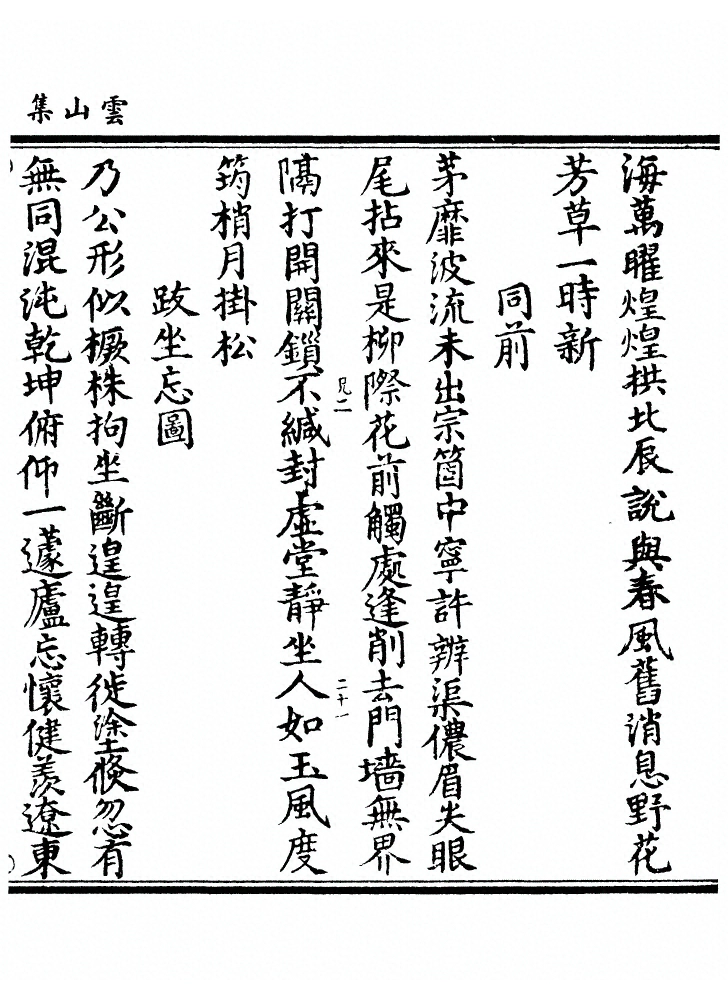 雲山集
海萬曜煌煌拱北辰說與春風舊消息野花
芳草一時新
同前
茅靡波流未出宗箇中寧許辨渠儂眉失眼
尾拈來是柳際花前觸處逢削去門墻無界
兄二
二十一
隔打開關鎖不緘封虛堂靜坐人如玉風度
筠梢月掛松
跋坐忘圖
乃公形似橛株拘坐斷遑遑轉徙塗倏忽有
無同混沌乾坤俯仰一蘧廬忘懷健羨遼東